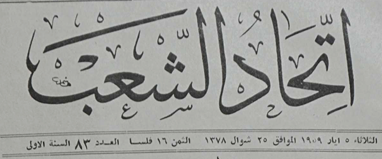 اتحاد الشعب
الثلاثاء ٥ ايار ١٩٥٩ الموافق ٢٥ شوال ١٣٧٨ الثمن ١٦ فلسا العدد ٨٣ السنة الاولى